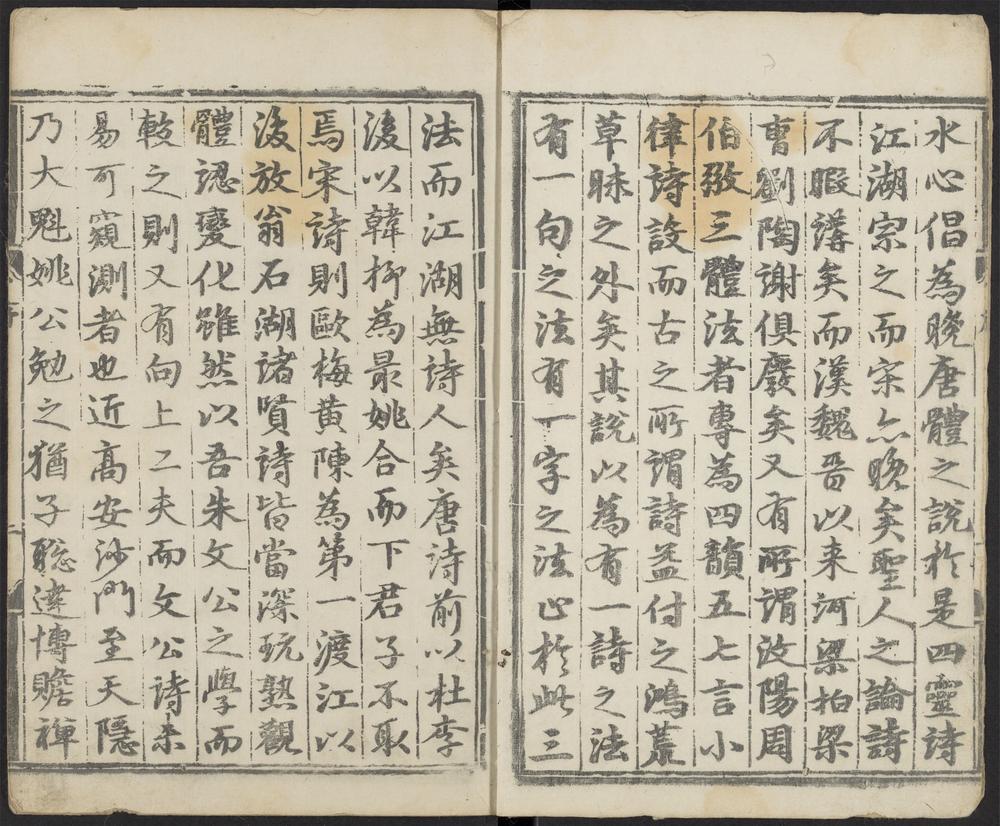 水心倡為晚唐體之說於是四靈詩
江湖宗之而宋亦晚矣聖人之論詩
不暇講矣而漢魏晉以来河梁柏梁
曹劉陶謝俱廢矣又有所謂汶陽周
伯弜三體法者專為四韻五七言小
律詩設而古之所謂詩益付之鴻荒
草昧之外矣其說以為有一詩之法
有一句之法有一字之法止於此三
法而江湖無詩人矣唐詩前以杜李
後以韓柳為最姚合而下君子不取
焉宋詩則歐梅黄陳為第一渡江以
後放翁石湖諸賢詩皆當深玩熟觀
體認變化雖然以吾朱文公之學而
較之則又有向上工夫而文公詩未
易可窺測者也近髙安沙門至天隱
乃大魁姚公勉之猶子聡達博贍禅